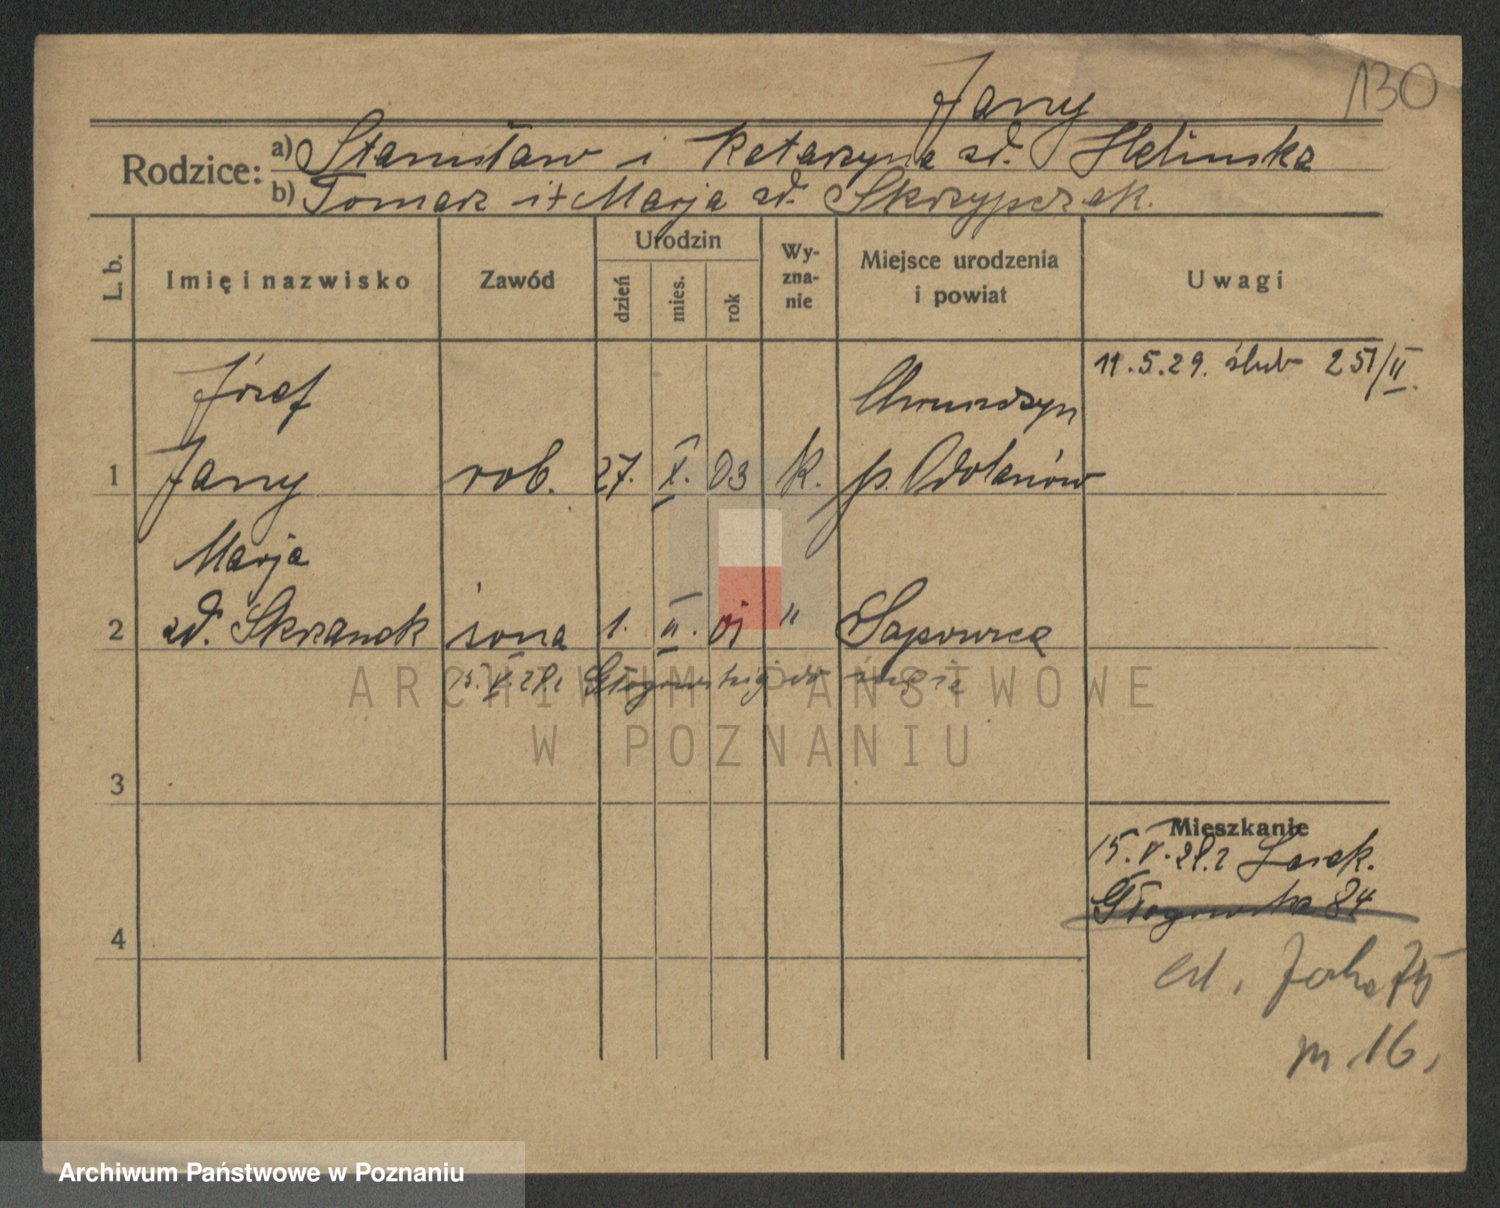 Jany
130
Rodzice: a) Stanisław i Katarzyna zd. Helinska
b) Tomasz i + Marja zd. Skrzypczak.
L. b.
Imię i nazwisko
Zawód
Urodzin
dzień
mies.
rok
Wy-
zna-
nie
Miejsce urodzenia
i powiat
Uwagi
11.5.29. ślub 251/II.
Józef
1 Jany rob. 27. X. 03 k. p. Odolanów
Marja
2 zd. Skrzanek żona 1. II. 01 " Sapowice
15. V. 28. r
ARCHIWUM PAŃSTWOWE
W POZNANIU
3
Mieszkanie
15. V. 28. r
Głogowska 84
4
m 16,
Archiwum Państwowe w Poznaniu